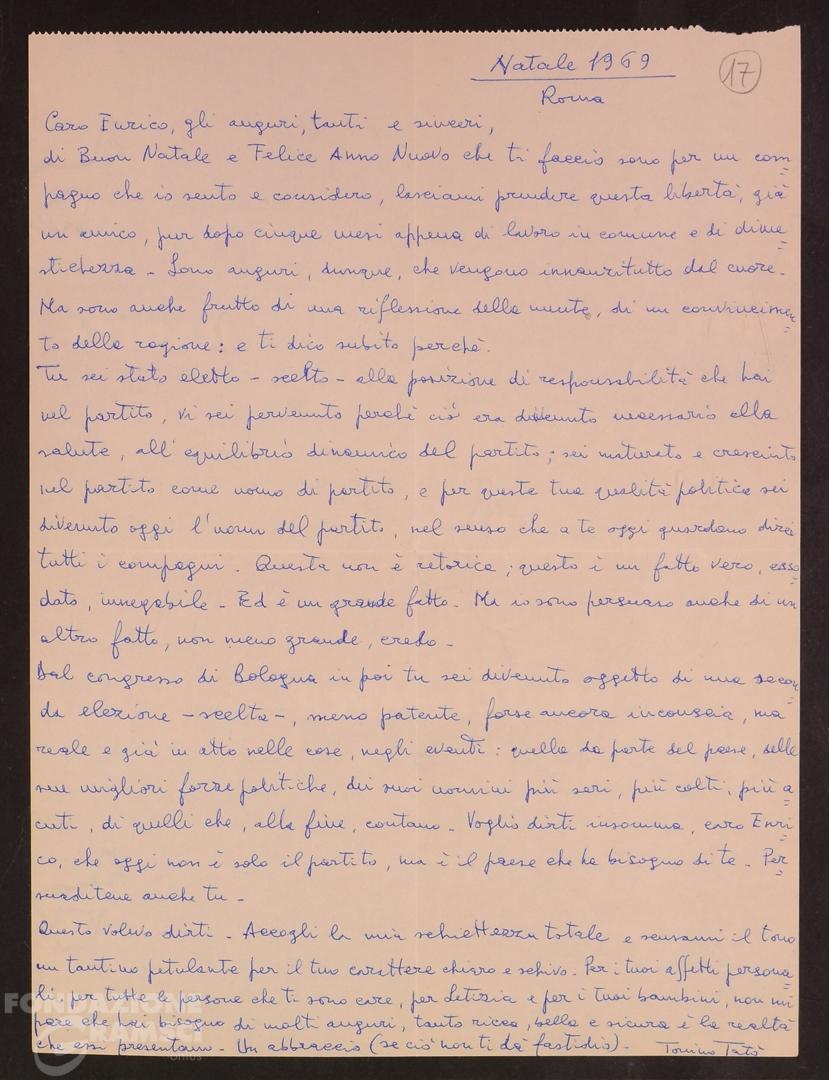 Natale 1969
17
Roma
Caro Enrico, gli auguri, tanti e sinceri,
di Buon Natale e Felice Anno Nuovo che ti faccio sono per un com=
pagno che io sento e considero, lasciami prendere questa libertà, già
un amico, pur dopo cinque mesi appena di lavoro in comune e di dime=
stichezza - Sono auguri, dunque, che vengono innanzitutto dal cuore.
Ma sono anche frutto di una riflessione della mente, di un convincimen=
to della ragione: e ti dico subito perchè.
Tu sei stato eletto - scelto - alla posizione di responsabilità che hai
nel partito, vi sei pervenuto perchè ciò era divenuto necessario alla
salute, all'equilibrio dinamico del partito; sei maturato e cresciuto
nel partito come uomo di partito, e per questa tua qualità politica sei
divenuto oggi l'uomo del partito, nel senso che a te oggi guardano
tutti i compagni. Questa non è retorica; questo è un fatto vero,
dato, innegabile - Ed è un grande fatto - Ma io sono persuaso anche di un
altro fatto, non meno grande, credo -
Dal congresso di Bologna in poi tu sei divenuto oggetto di una secon=
da elezione - scelta -, meno patente, forse ancora inconscia, ma
reale e già in atto nelle cose, negli eventi: quella da parte del paese, delle
sue migliori forze politiche, dei suoi uomini più seri, più colti, più a=
cuti, di quelli che, alla fine, contano - Voglio dirti insomma, caro Enri=
co, che oggi non è solo il partito, ma è il paese che ha bisogno di te - Per=
suaditene anche tu -
Questo volevo dirti - Accogli la mia schiettezza totale e scusami il tono
un tantino petulante per il tuo carattere chiaro e schivo. Per i tuoi affetti persona=
li, per tutte le persone che ti sono care, per Letizia e per i tuoi bambini, non mi
pare che hai bisogno di molti auguri, tanto ricca, bella e sicura è la realtà
che essi presentano - Un abbraccio (se ciò non ti dà fastidio) - Tonino Tatò
FONDAZIONE
GRAMSCI
onlus